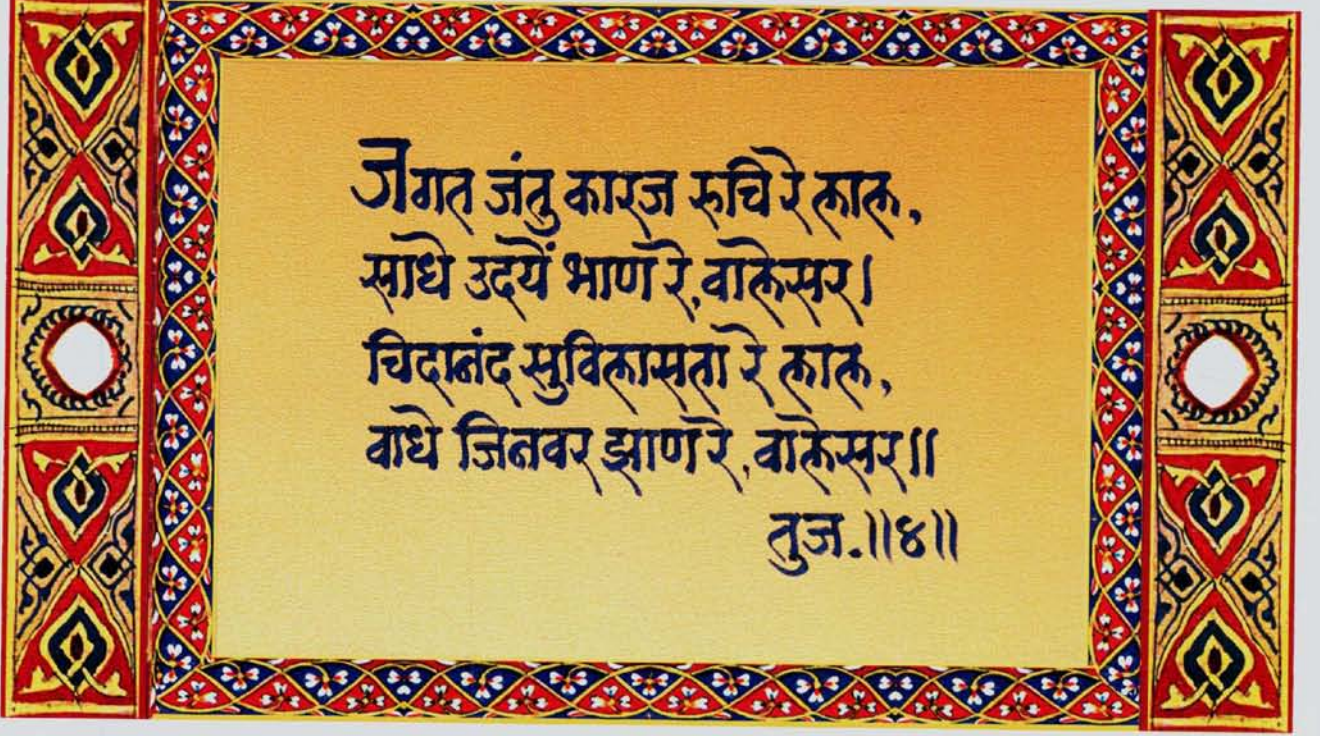 जगत जंतु कारज रुचि रे लाल,
साधे उदयें भाण रे, वालेसर।
चिदानंद सुविलासता रे लाल,
वाधे जिनवर झाण रे, वालेसर॥
तुज.॥४॥